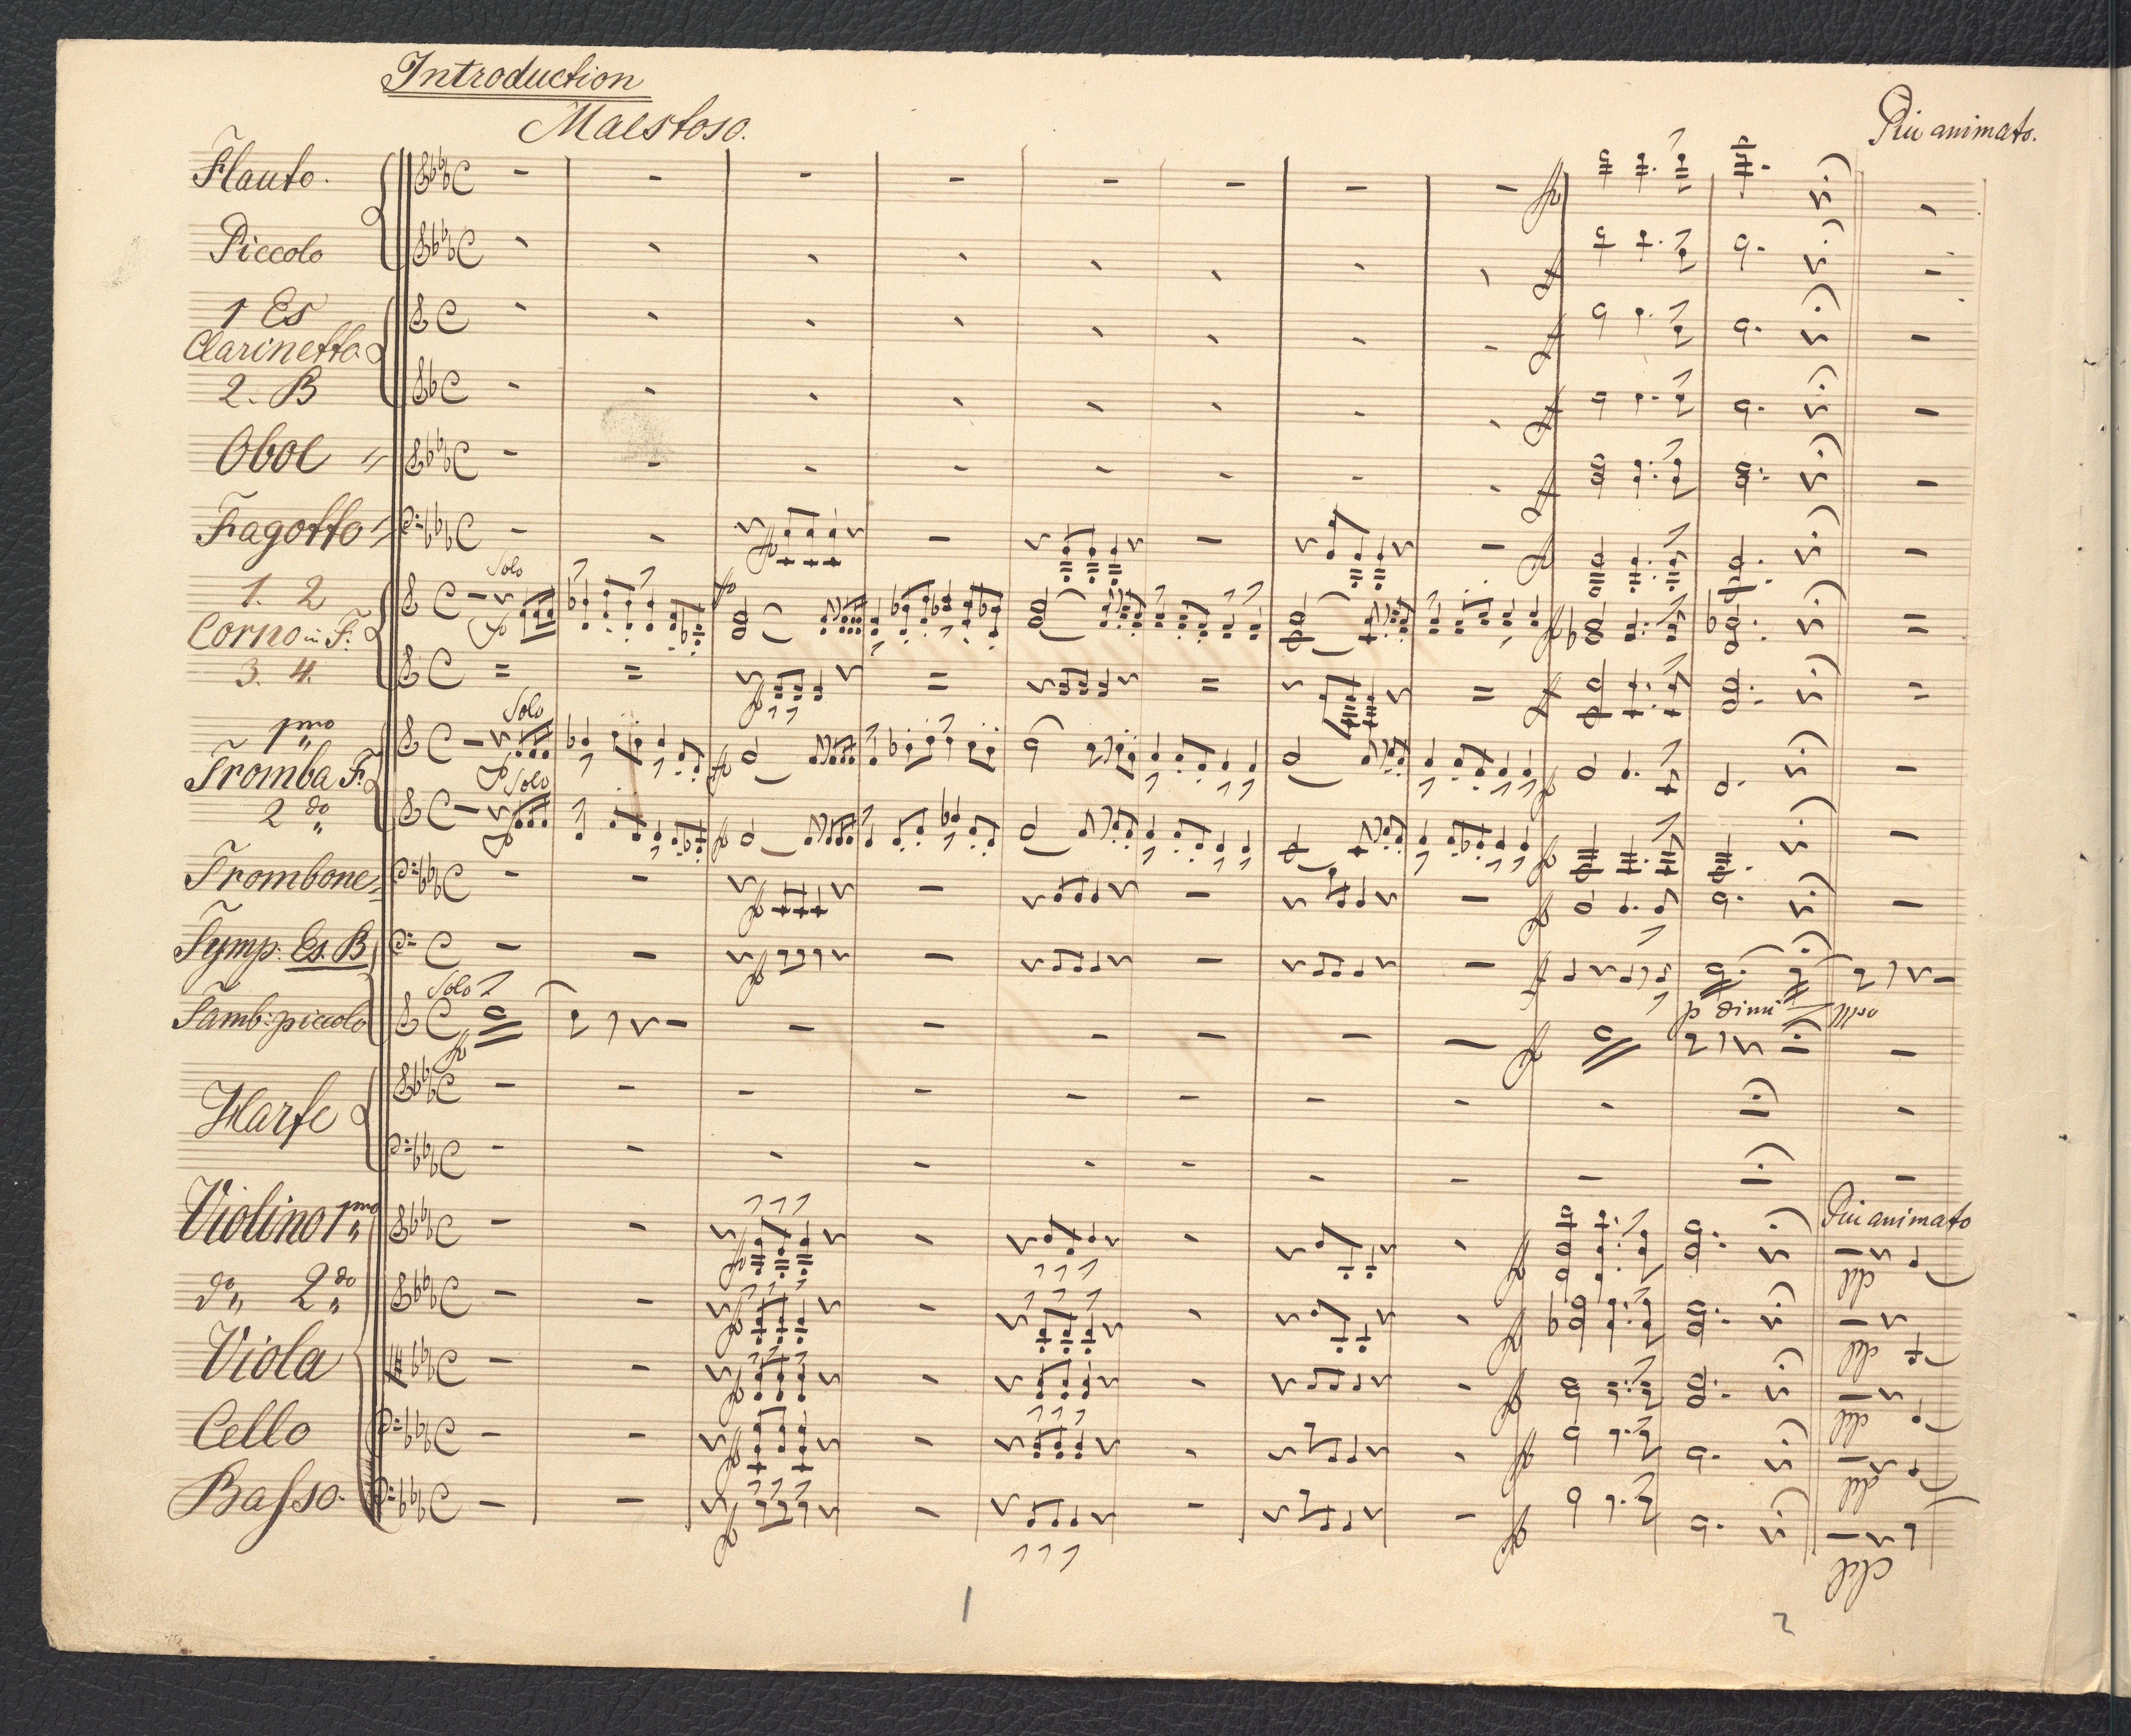 Introduction
Maestoso.
Più animato.
Flauto.
Piccolo
1 Es
Clarinetto
2. B
Oboe
Fagotto
Solo
1. 2
Corno in F.
3. 4.
Solo
1mo
Tromba F.
Solo
2do
Trombone
Tymp: Es. B
Solo
Tamb: piccolo
p dimi
Harfe
Violino 1mo
Più animato
do 2do
Viola
Cello
Basso.
1
2